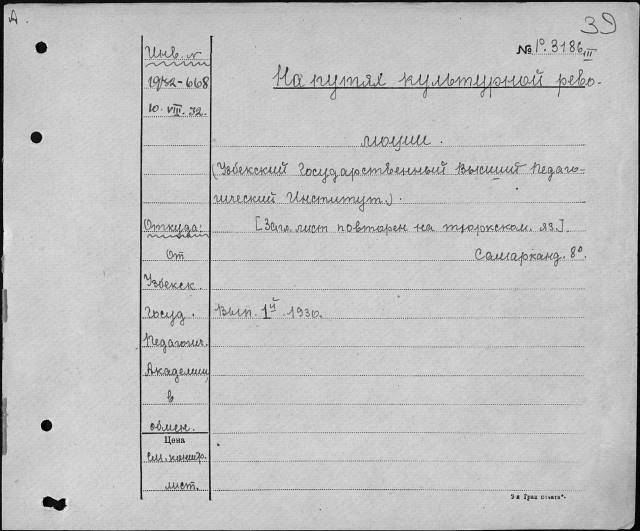 А
39
№ 1º. 3186 III
Инв. №
1932-668
10. VIII. 32.
На путях культурной рево-
люции.
(Узбекский Государственный Высший Педаго-
гический Институт).
Откуда:
[Загл. лист повторен на тюркском. яз.].
От
Самарканд. 8º.
Узбекск.
Госуд.
Вып. 1й 1930.
Педагогич.
Академии
в
обмен.
Цена
см. контр.
лист.